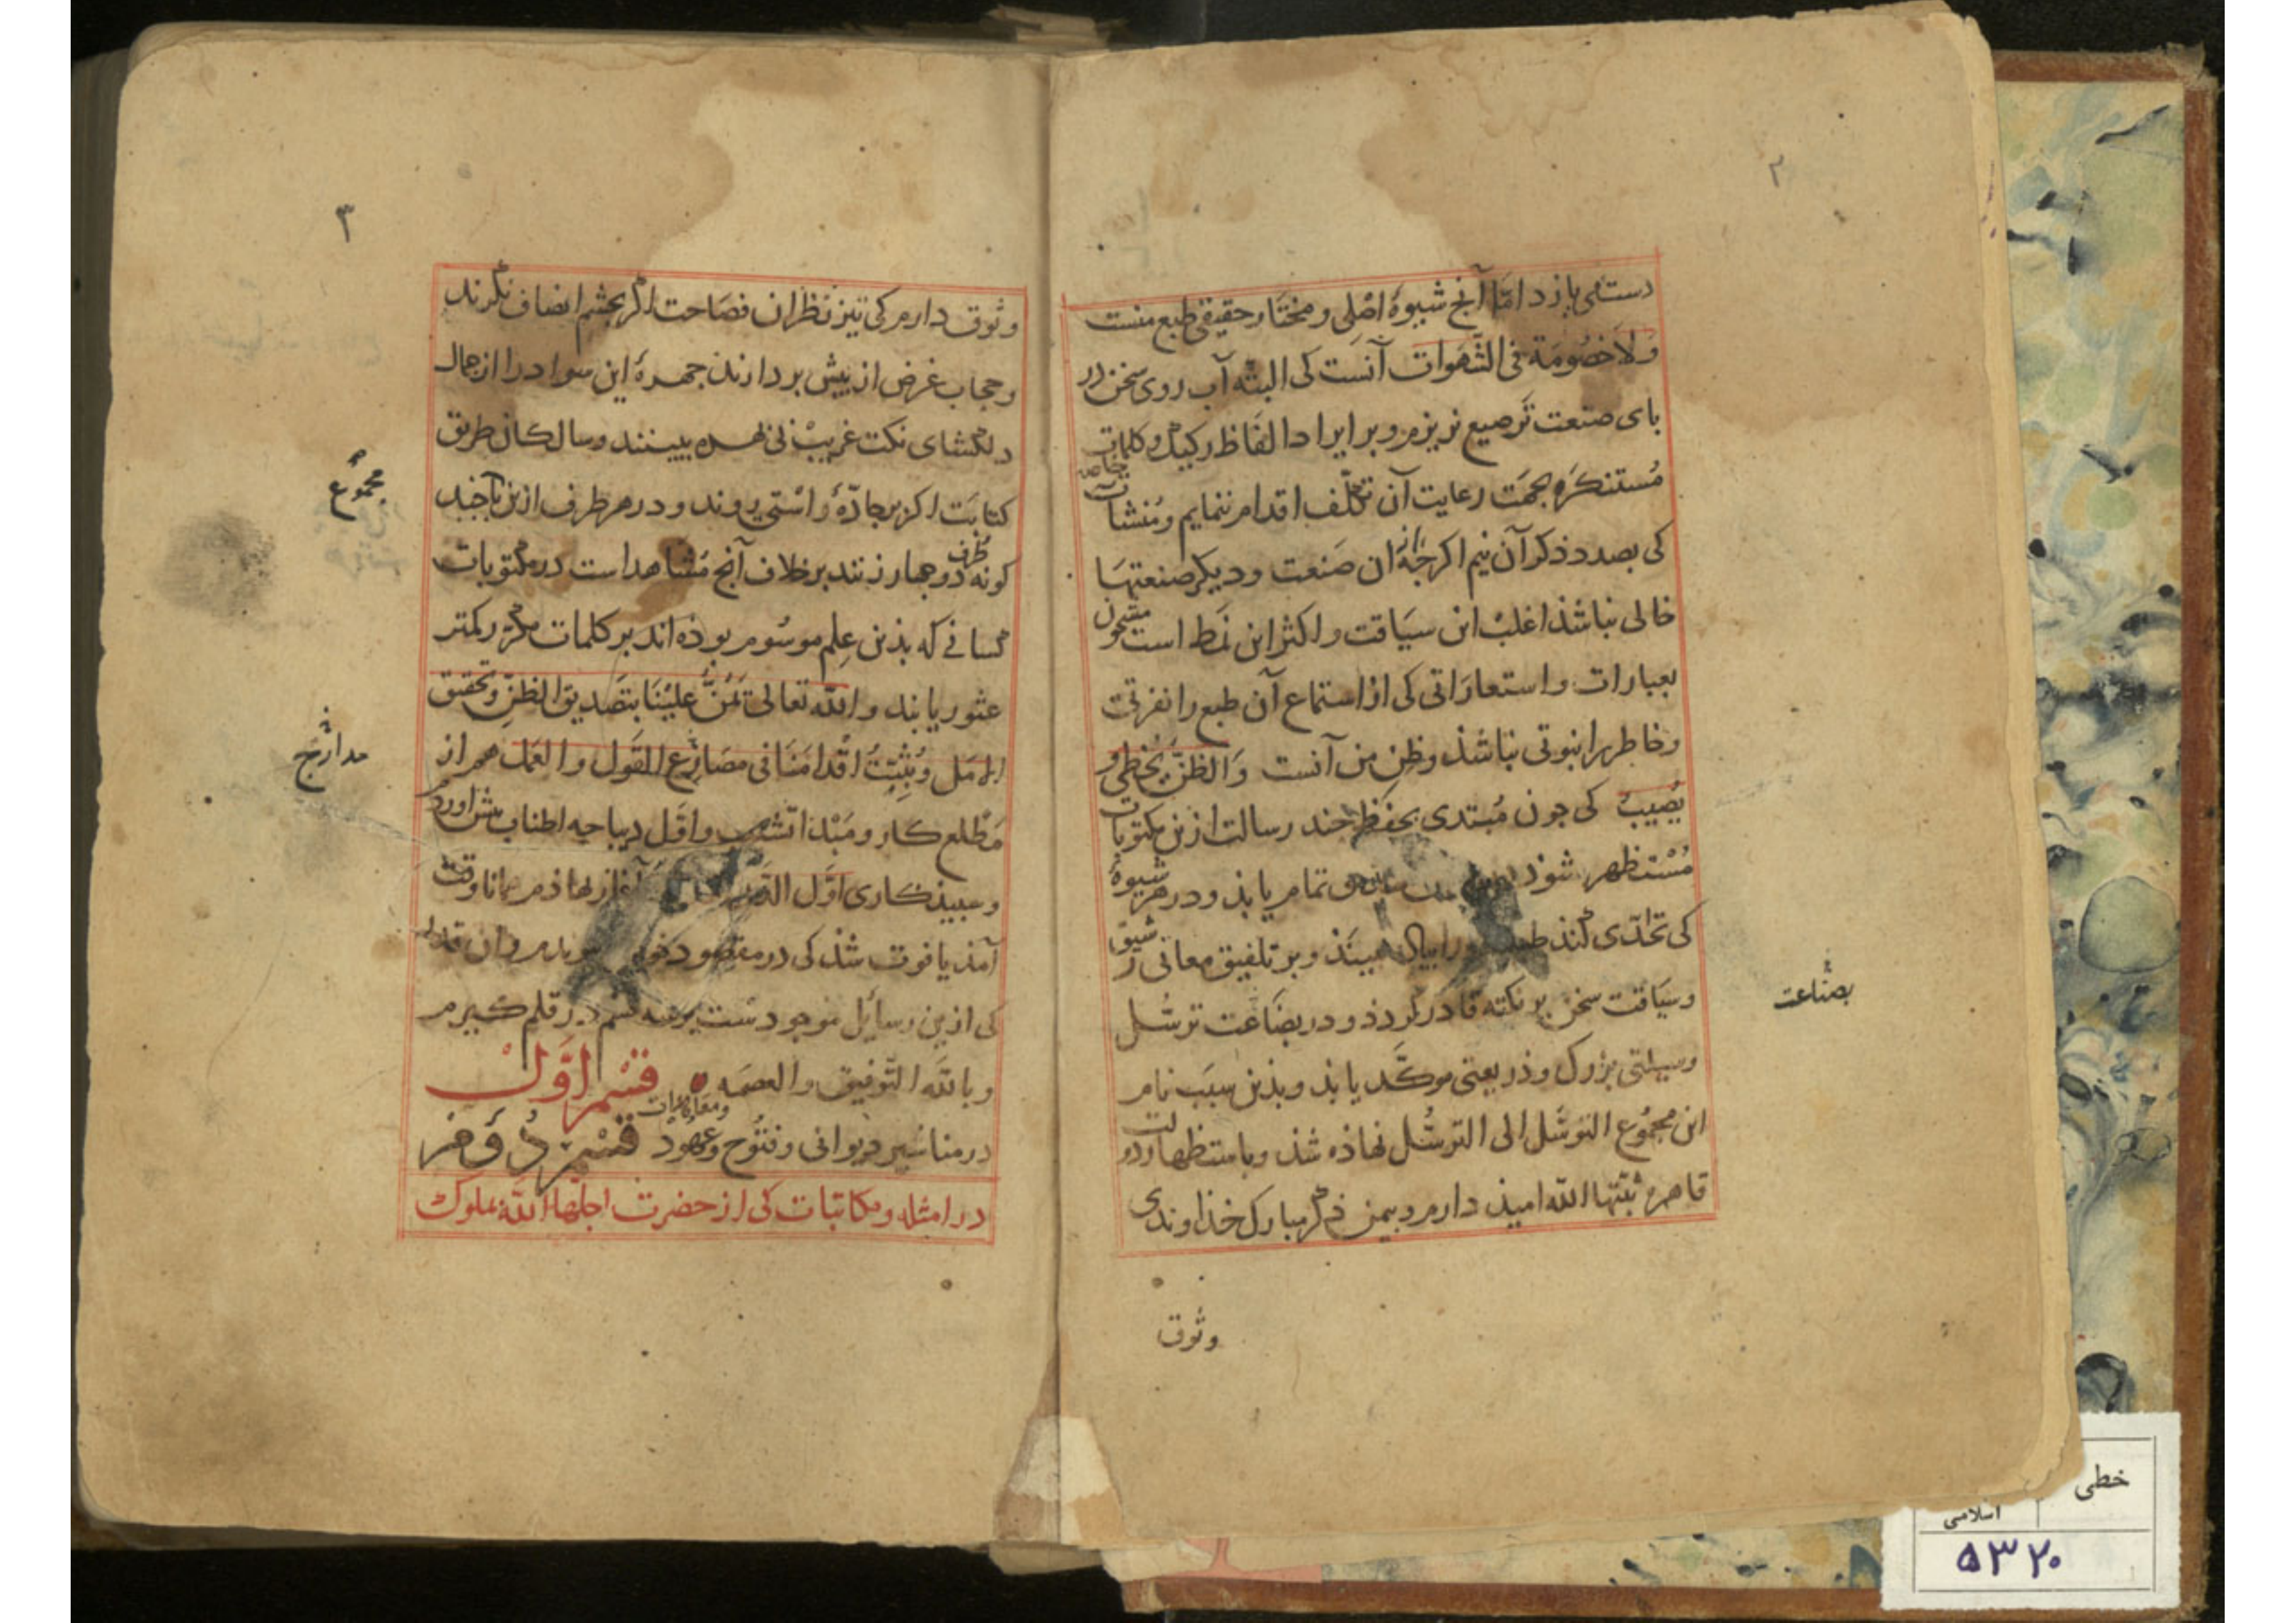 ۲
دست می یازد اما آنج شیوهٔ اصلی و مختار حقیقی طبع منست
وَلاَ خصُومَة فی الشهَوات آنست کی البته آب روی سخن در
بای صنعت ترصیع نریزم و بر ایراد الفاظ رکیک و کلمات
مُستنکرَه بجهت رعایت آن تکلّف اقدام ننمایم و مُنشآت خاصه
کی بصدد ذکر آن نیم اگرجه از ان صنعت و دیکر صنعتها
خالی نباشذ اغلب این سیاقت و اکثر این نمط است مشحون
بعبارات و استعاراتی کی از استماع آن طبع را نفرتی
و خاطر را نبوتی نباشذ و ظن من آنست وَالظنّ یُخطی و
یُصیبُ کی جون مُبتدی بحفظ جند رسالت ازین مکتوبات
مُستظهر شوذ تمام یابذ و در هر شیوهٔ
کی تحدّی کند طبع را بیند و بر تلفیق معانی رشیق
و سیاقت سخن بر نکته قادر گردذ و در بضاعت ترسُّل
وسیلتی بزرگ و ذریعتی موکّد یابذ و بذین سبَب نام
این مجمُوع التوسّل الی الترسُّل نهاذه شذ و باستظهار دولت
قاهره ثبّتها الله امیذ دارم و بیمن ذکر مبارک خذاوندی
بضاعت
وثوق
۳
وثوق دارم کی تیز نظران فصاحت اگر بجشم انصاف نگرند
و حجاب غرض از بیش بردارند جهرهٔ این سواد را از جمال
دلگشای نکت غریب بی بهره نبینند و سالکان طریق
کتابت اکر بر جادّهٔ راستی روند و در هر طرف ازین باجند
کونه طرف دوجهار زنند بر خلاف آنج مشاهد است در مکتوبات
کسانی که بذین عِلم موسُوم بوذه اند بر کلمات مکرّر کمتر
عثور یابند و الله تعالی یَمُنُّ علینَا بتصدیق الظنِّ و تحقیق
الامل و یُثبّتُ اقدامَنا فی مصَارع القَول و العمَل هم از
مطلع کار و مَبْدا انشا و اوّل دیباجه اطناب بیش آورد
و سبیذکاری اوَّل آغاز نهاذم همانا وقت
آمذ یا فوت شذ کی در مقصود و ان قدر
کی ازین رسایل موجودست بر سه قسم در قلم کیرم
و بالله التّوفیق و العصمَه قسْم اوَّلْ
در مناشیر دیوانی و فتُوح و عهُود و معاهدات قسْم دُوُم
در امثله و مکاتبات کی از حضرت اجلّها الله بملوک
مجمُوع
مدارج
خطی
اسلامی
۵۳۲۰